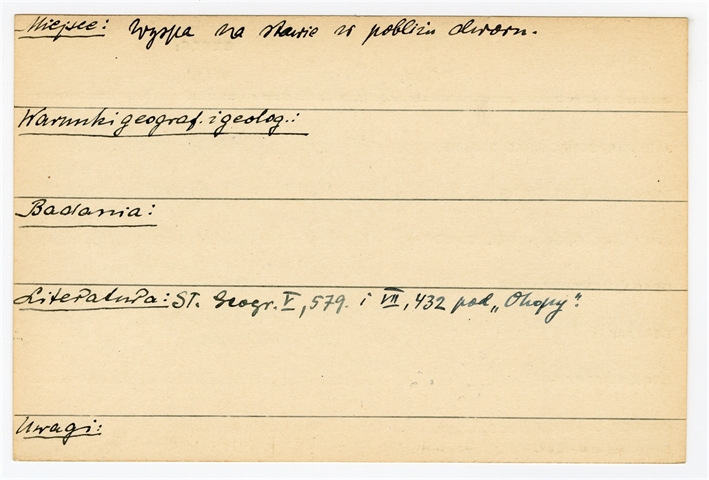 Miejsce: Wyspa na stawie w pobliżu dworu.
Warunki geograf. i geolog.:
Badania:
Literatura: Sł. Geogr. V, 579. i VII, 432 pod „Okopy".
Uwagi: